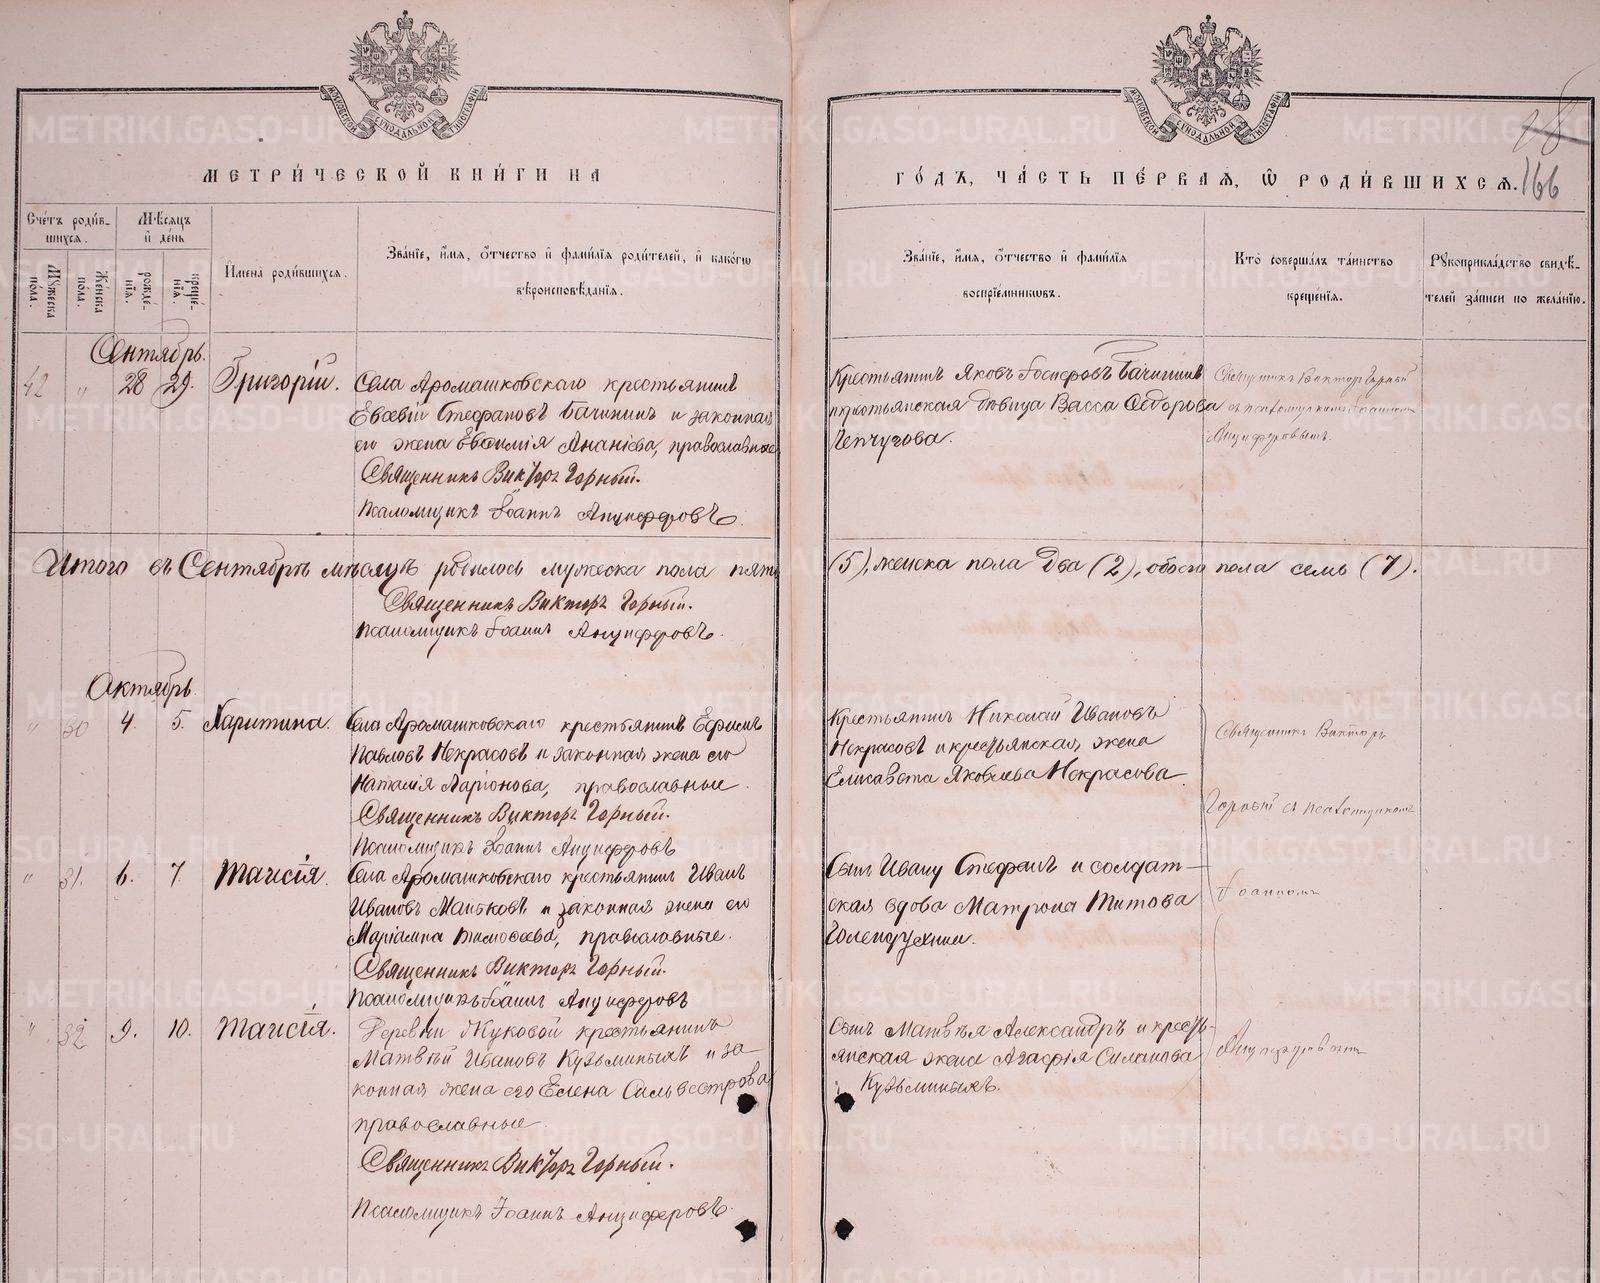 МЕТРИ́ЧЕСКОЙ КНИ́ГИ НА
ГО́ДЪ, ЧА́СТЬ ПЕ́РВАѦ, Ѿ РОДИ́ВШИХСѦ.
166
Сче́тъ роди́в-
шихся.
Мѣ́сяцъ
и де́нь
Мужеска
пола.
Женска
по́ла.
рожде-
нїя.
креще́-
нїя.
Имена́ роди́вшихся.
Зва́нїе, и́мя, о́тчество и фами́лїя роди́телей, и како́гѡ
вѣроисповѣ́данїя.
Зва́нїе, и́мя, о́тчество и фами́лїя
воспрїе́мниковъ.
Кто̀ соверша́лъ та́инство
креще́нїя.
Рукоприкла́дство свидѣ́-
телей за́писи по жела́нїю.
Сентябрь.
42 " 28 29. Григорій.
Села Аромашковскаго крестьянинъ
Евсевій Стефановъ Бачининъ и законная
его жена Евфимія Ананіева, православные
Священникъ Викторъ Горный.
Псаломщикъ Іоаннъ Анциферовъ.
Крестьянинъ Яковъ Бачининъ
и крестьянская дѣвица Васса Ѳедорова
Пепчугова.
Священникъ Викторъ Горный
съ псаломщикомъ Іоанномъ
Анциферовымъ.
Итого въ Сентябрѣ мѣсяцѣ родилось мужеска пола пять
(5), женска пола два (2), обоего пола семь (7).
Священникъ Викторъ Горный.
Псаломщикъ Іоаннъ Анциферовъ.
Октябрь
" 30 4. 5. Харитина.
Села Аромашковскаго крестьянинъ Ефимъ
Павловъ Некрасовъ и законная жена его
Наталія Ларіонова, православные.
Священникъ Викторъ Горный.
Псаломщикъ Іоаннъ Анциферовъ
Крестьянинъ Николай Ивановъ
Некрасовъ и крестьянская жена
Елисавета Яковлева Некрасова
Священникъ Викторъ
Горный съ псаломщикомъ
" 31. 6. 7. Таисія.
Села Аромашковскаго крестьянинъ Иванъ
Ивановъ Маньковъ и законная жена его
Маріамна Тимоѳеева, православные.
Священникъ Викторъ Горный.
Псаломщикъ Іоаннъ Анциферовъ
Сынъ Ивану Стефанъ и солдат-
ская вдова Матрона Титова
Голендухина.
Іоанномъ
" 32 9. 10. Таисія.
Деревни Жуковой крестьянинъ
Матвѣй Ивановъ Кузьминыхъ и за-
конная жена его Елена Сильвестрова
православные.
Священникъ Викторъ Горный.
Псаломщикъ Іоаннъ Анциферовъ.
Сынъ Матвѣя Александръ и кресть-
янская жена Агафія Силанова
Кузьминыхъ.
Анциферовымъ
METRIKI.GASO-URAL.RU